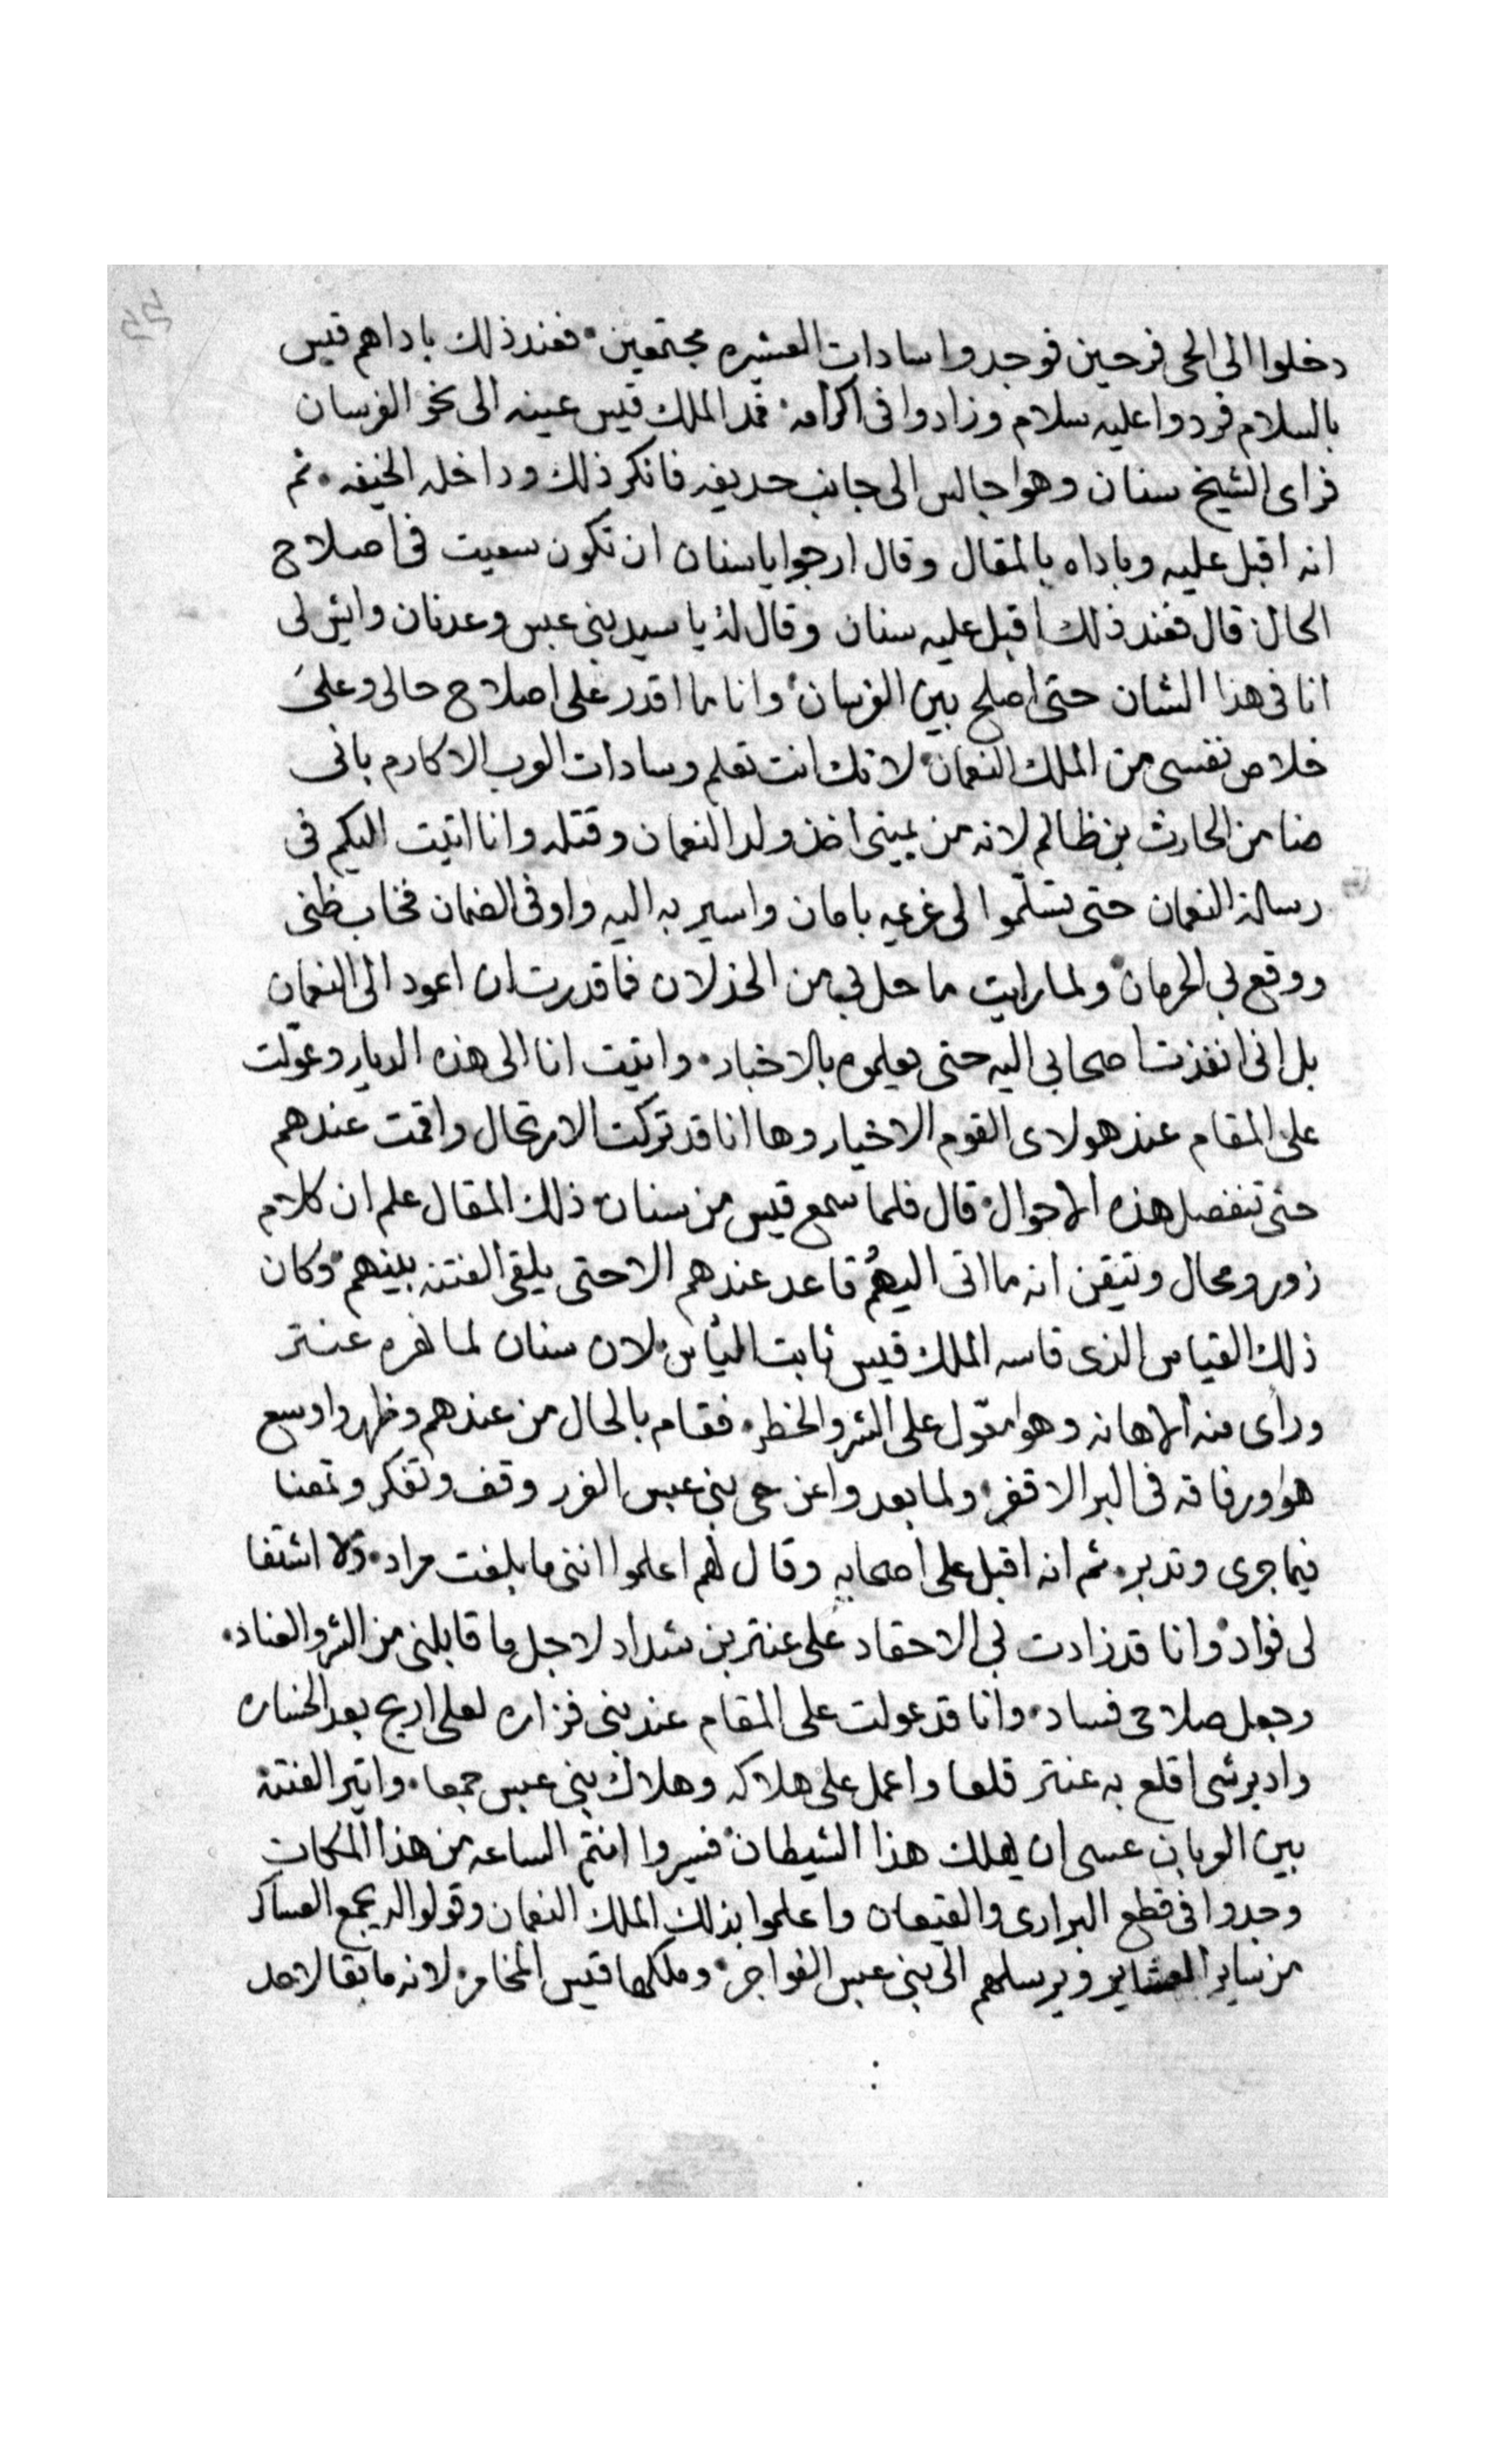 دخلوا الى الحى فرحين فوجدوا سادات العشيره مجتمعين فعند ذلك باداهم قيس
بالسلام فردوا عليه سلام وزادوا فى اكرامه فمد الملك قيس عينه الى نحو الفرسان
فراى الشيخ سنان وهوا جالس الى جانب حديفه فانكر ذلك وداخله الخيفه ثم
انه اقبل عليه وباداه بالمقال وقال ارجوا ياسنان ان تكون سعيت فى اصلاح
الحال قال فعند ذلك اقبل عليه سنان وقال له يا سيد بنى عبس وعدنان وايش لى
انا فى هذا الشان حتى اصلح بين الفرسان وانا ما اقدر على اصلاح حالى وعلىَ
خلاص نفسى من الملك النعمان لانك انت تعلم وسادات العرب الاكارم بانى
ضامن الحارث بن ظالم لانه من يمينى اخذ ولد النعمان وقتله وانا اتيت اليكم فى
رسالة النعمان حتى تسلّموا لى غرعيه بامان واسير به اليه واوفى الضمان فخاب ظنى
ووقع بى الحرمان ولما رايت ما حل بى من الخذلان فما قدرت ان اعود الى النعمان
بل انى انفذت اصحابى اليه حتى يعلموه بالاخبار واتيت انا الى هذه الديار وعوّلت
على المقام عند هولاى القوم الاخيار وها انا قد تركت الارتحال واقمت عندهم
حتى تنفصل هذه الاحوال قال فلما سمع قيس من سنان ذلك المقال علم ان كلامه
زور ومحال وتيقن انه ما اتى اليهم قاعد عندهم الا حتى يلقى الفتنه بينهم وكان
ذلك القياس الذى قاسه الملك قيس ثابت لان سنان لما نهره عنتر
وراى منه الاهانه وهوا معوّل على الشر والخطر فقام بالحال من عندهم وظهروا وسع
هوا ورفاقه فى البر الاقفر ولما بعدوا عن حى بنى عبس الغرر وقف وتفكر وتمعنا
فيما جرى وتدبر ثم انه اقبل على اصحابه وقال لهم اعلموا اننى ما بلغت مراد ولا اشتفا
لى فواد وانا قد زادت بى الاحقاد على عنتر بن شداد لاجل ما قابلنى من الشر والعناد
وجعل صلاحى فساد وانا قد عولت على المقام عند بنى فزاره لعلى اربح بعد الخساره
وادبر شى اقلع به عنتر قلعا واعمل على هلاكه وهلاك بنى عبس جمعا واثير الفتنة
بين العربان عسى ان يهلك هذا الشيطان فسيروا انتم الساعه من هذا المكان
وجدوا فى قطع البرارى والقيعان واعلموا بذلك الملك النعمان وقولوا له يجمع العساكر
من ساير العشاير ويرسلهم الى بنى عبس الفواجر وملكها قيس المخامر لانه ما بقا لاحد